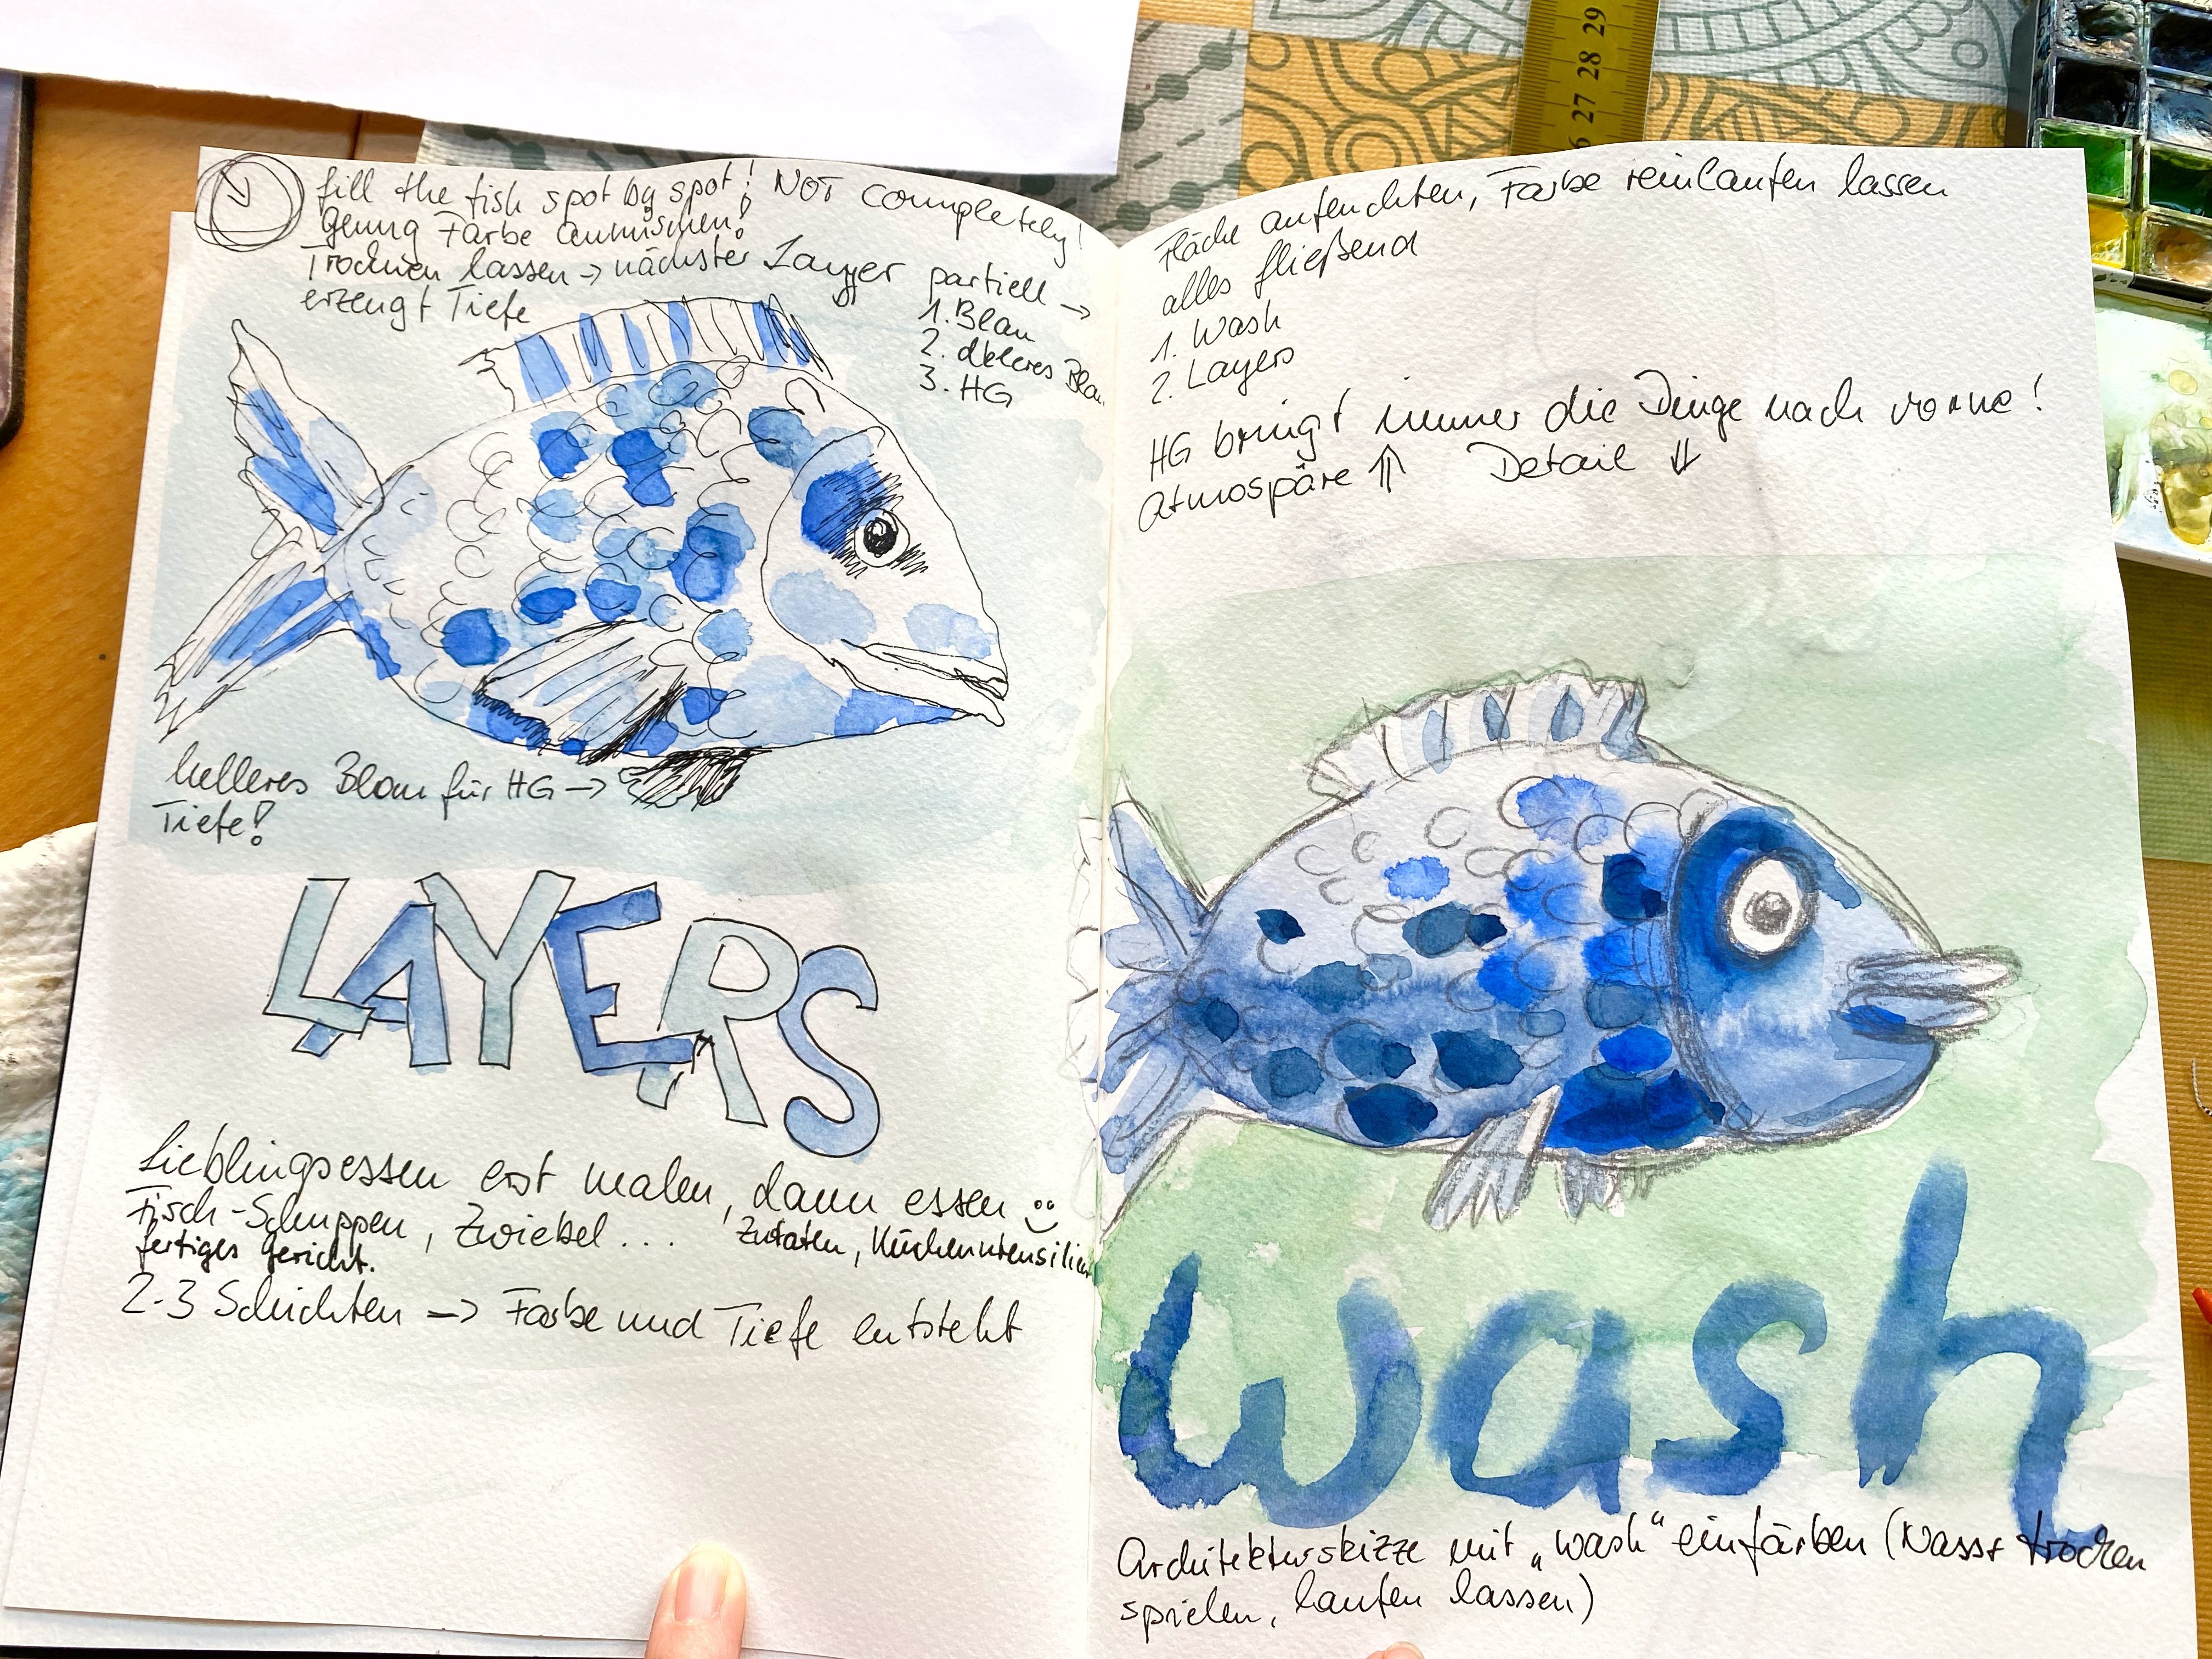 fill the fish spot by spot! NOT completely!
genug Farbe anmischen!
Trocknen lassen → nächster Layer partiell →
erzeugt Tiefe
1. Blau
2. dkleres Blau
3. HG
helleres Blau für HG →
Tiefe!
LAYERS
Lieblingsessen erst malen, dann essen
Fisch-Schuppen, Zwiebel... Zutaten, Küchenutensilien
fertiges Gericht.
2-3 Schichten → Farbe und Tiefe entsteht
29
28
27
Fläche anfeuchten, Farbe reinlaufen lassen
alles fließend
1. Wash
2. Layers
HG bringt immer die Dinge nach vorne!
Atmospäre ⇑ Detail ⇓
wash
Architekturskizze mit „wash“ einfärben (Nass+trocken
spielen, laufen lassen)